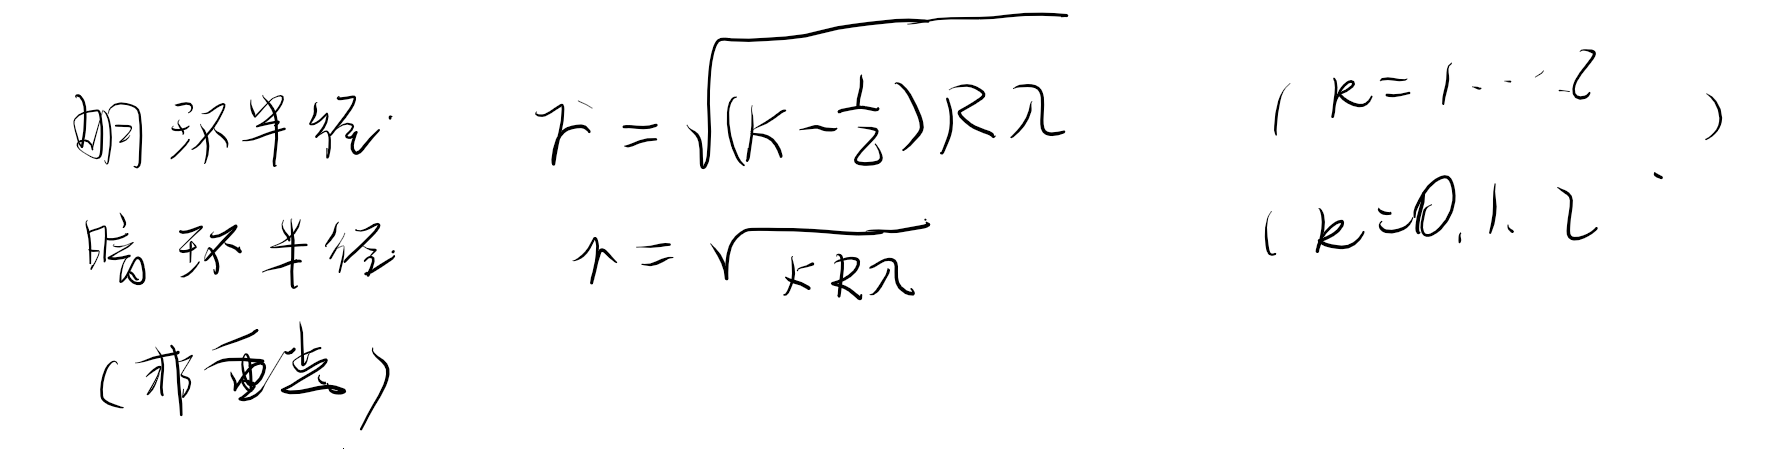 明环半径 r = √((K-1/2)Rλ) (k=1...2)
暗环半径 r = √(KRλ) (k=0.1.2
(非重点)